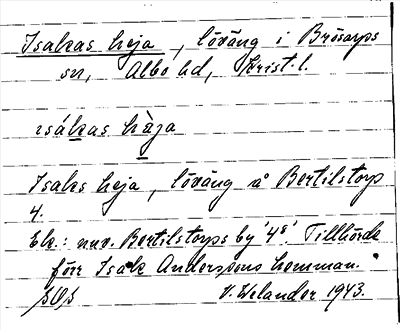 Isakas heja, löväng i Brösarps
sn, Albo hd, Krist. l.
isákas hàja
Isaks heja, löväng å Bertilstorp
4.
Ek.: nuv. Bertilstorps by '4⁸'. Tillhörde
förr Isak Anderssons hemman.
V. Welander 1943.